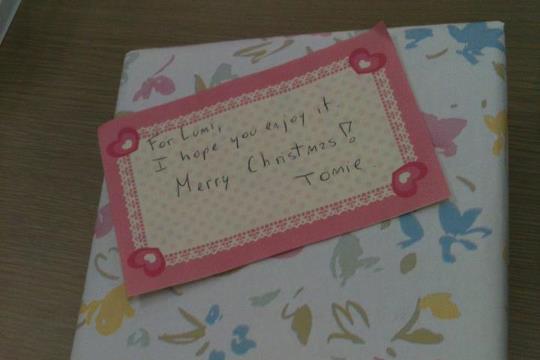 For Lumi,
I hope you enjoy it.
Merry Christmas!
Tomie